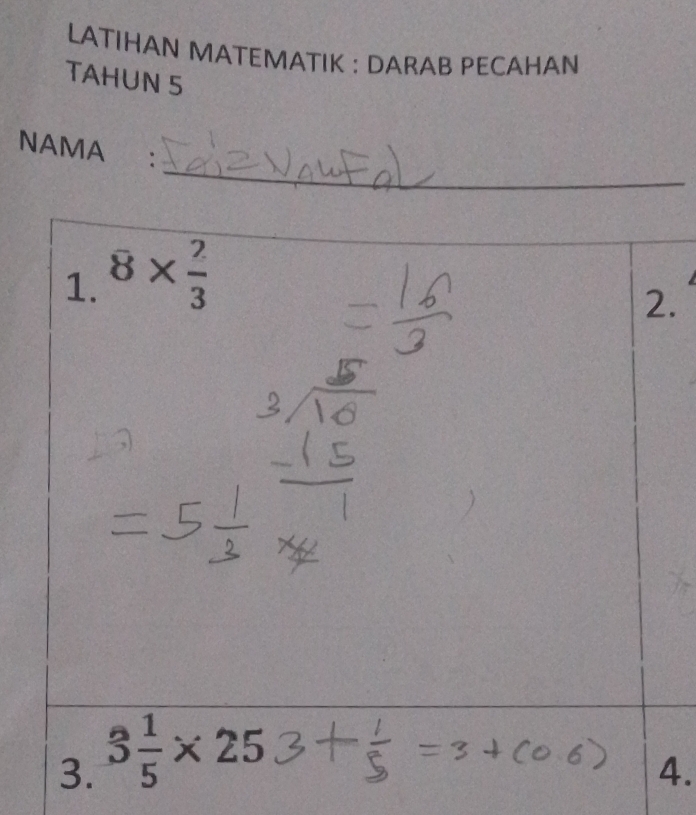 LATIHAN MATEMATIK : DARAB PECAHAN
TAHUN 5
NAMA : Faiz Naufal
1. 8 × 2/3
= 16/3
5
3 / 16
- 15
1
= 5 1/3
2.
3. 3 1/5 × 25 3 + 1/5 = 3 + (0.6)
4.